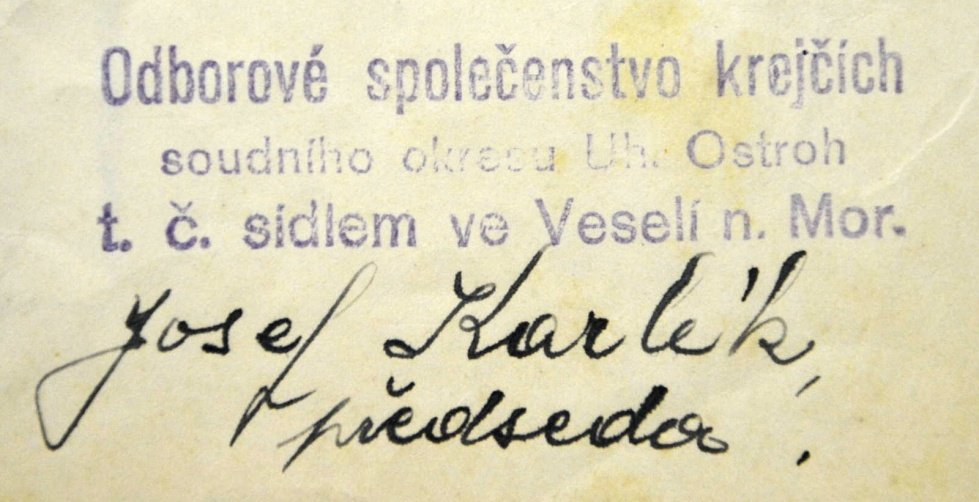 Odborové společenstvo krejčích
soudního okresu Uh. Ostroh
t. č. sídlem ve Veselí n. Mor.
Josef Karlík,
předseda.